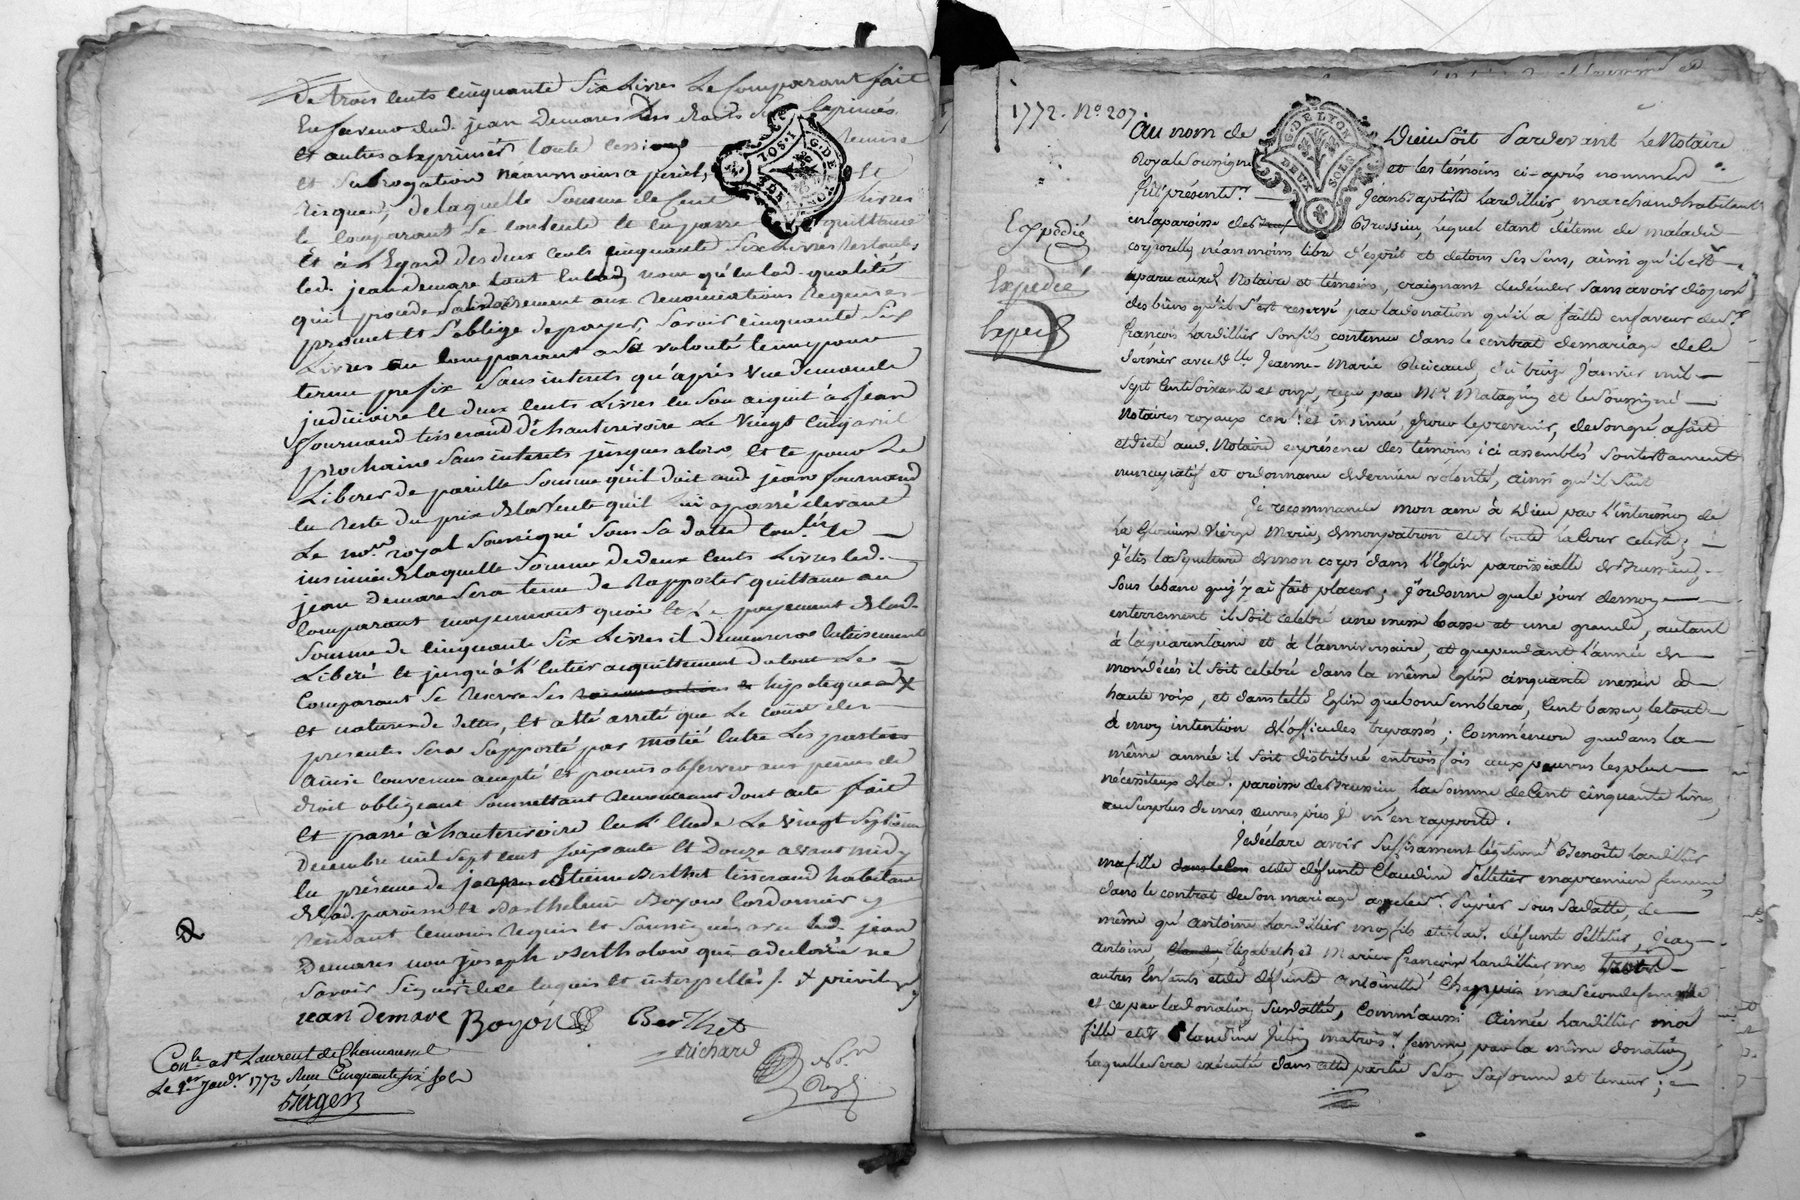 de trois cents cinquante Six Livres Le Comparant fait
En faveur dud. jean Demare des droits exprimés
et autres a exprimer toute cession remise
et Subrogation néanmoins a peril, et
risques, de laquelle Somme de Cent Livres
le Comparant Se contente et en passe quittance
Et à L'Egard des deux Cents Cinquante Six Livres restantes
led. jean demare tant en lad nom qu'en lad. qualité
qu'il procede Solidairement aux renonciations requises
promet et S'oblige de payer, Savoir cinquante Six
Livres au Comparant a Sa volonté tems pour
terme prefix Sans interets qu'après vue demande
judiciaire et deux cents Livres en Son acquit à jean
fournand tisserand d'hauterivoire Le Vingt cinq avril
prochain Sans interets jusques alors et ce pour Le
Liberer de pareille Somme qu'il doit aud. jean fournand
en reste du prix de la Vente qu'il lui a passé devant
Le nore royal Soussigné Sous Sa datte et
insinuée de laquelle Somme de deux cents Livres led.
jean Demare Sera tenu de Rapporter quittance au
Comparant moyennant quoi et Le payement de lad.
Somme de cinquante Six Livres il demeurera entierement
Liberé et jusqu'à L'entier acquittement du tout Le
Comparant Se reserve Ses hypoteques x
et nature de dettes, et a été arreté que Le cout des
presentes Sera Supporté par motié entre Les parties
Ainsi Convenu accepté et promis observer aux peines de
droit obligeant Soumettant Renonceant dont acte fait
et passé à hauterivoire en L'Etude Le vingt Sept
Decembre mil Sept cent soixante et Douze avant midy
En présence de Etienne Berthet tisserand habitant
de lad. paroisse et Barthelemi Boyon Cordonnier y
residant temoins requis et Soussignés avec led. jean
Demares non joseph Bertholon qui a declaré ne
Savoir Signer de ce enquis et interpellés /. x privileges
jean demare Boyon Berthet
Richard
Conlé a St Laurent de Chamousset
Le 1er Janvr 1773 Reçu Cinquante six sols
Berger
G. DE LYON
1772. No. 207.
G. DE LYON
DEUX SOLS
Expedié
Expedié
Exped
Au nom de Dieu Soit Pardevant Le Notaire
Royal Soussigné et les témoins ci-après nommés
fut présent Sr. Jean Baptiste Lardillier, marchand habitant
en la paroisse de Brussieu, lequel etant détenu de maladie
corporelle, néanmoins libre d'esprit et de tous Ses Sens, ainsi qu'il est
aparu auxd. Notaire et témoins, craignant de déceder Sans avoir disposé
des biens qu'il S'est reservé par la donation qu'il a faitte en faveur de Sr.
François Lardillier Son fils, contenue dans le contrat de mariage de ce
dernier avec Dlle Jeanne-Marie du treize Janvier mil
Sept Cent Soixante et onze, reçu par Me Mataguin et le Soussigné
Notaires royaux conlé et insinué, pour le prevenir, de Son gré a fait
et dicté aud. Notaire en présence des témoins ici assemblés Son testament
nuncupatif et ordonnance de derniere volonté, ainsi qu'il Suit
Je recommande mon ame à Dieu par L'intercession de
La Glorieuse Vierge Marie, de mon patron et de toute la Cour celeste;
J'élis la Sépulture de mon corps dans L'Eglise paroissialle de Brussieu,
Sous le banc que j'y ai fait placer; J'ordonne que le jour de mon
enterrement il Soit célebré une messe basse et une grande, autant
à la quarantaine et à l'anniversaire, et que pendant l'année de
mon décès il Soit celebré dans la même Eglise cinquante messes à
haute voix, et dans telle Eglise que bon Semblera, Cent basses, le tout
à mon intention et des fidèles trepassés; Comme encore que dans la
même année il Soit distribué en trois fois aux pauvres les plus
nécessiteux de lad. paroisse de Brussieu, la Somme de Cent cinquante livres,
au Surplus de mes œuvres pies Je m'en rapporte.
Je déclare avoir Suffisament légitimé Benoîte Lardillier
ma fille et de défunte Claudine Pelletier ma premiere femme
dans le contrat de Son mariage avec le Sr. Pupier Sous Sa datte, de
même qu'Antoine Lardillier mon fils et de lad. défunte Pelletier, Jean
Antoine, Elizabeth, et Marie françoise Lardillier mes
autres Enfants et de défunte Antoinette Chappuis ma Seconde femme
et ce par la donation Susdatée, Comm'aussi Aimée Lardillier ma
fille et de Claudine Jubin ma trois.e femme, par la même donation,
laquelle Sera exécutée dans cette partie Selon Sa forme et teneur;